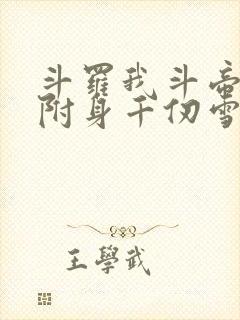 斗羅我斗帝
附身千仞雪
王學武